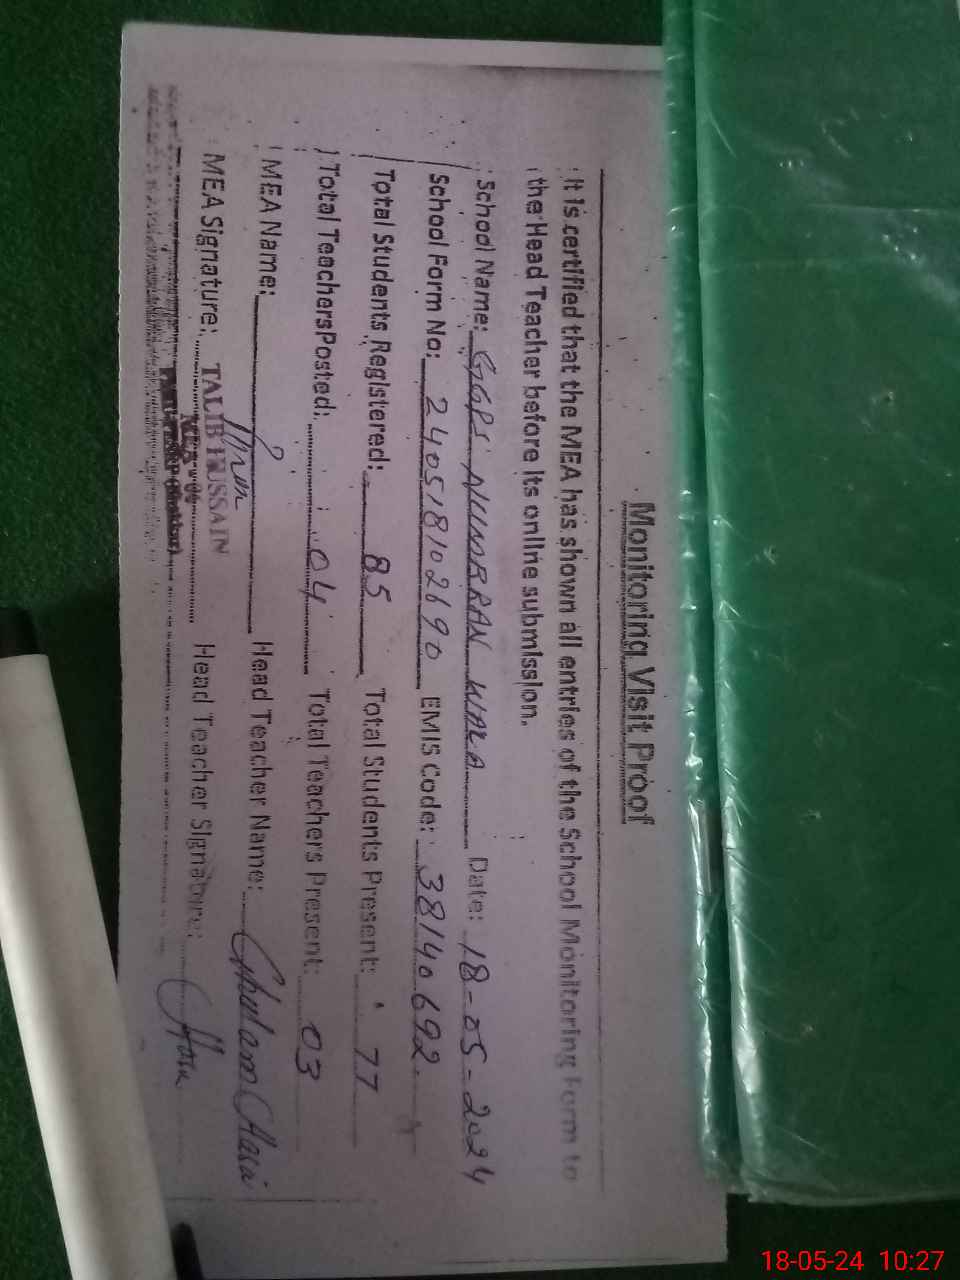 Monitoring Visit Proof
It is certified that the MEA has shown all entries of the School Monitoring Form to
the Head Teacher before its online submission.
School Name: GGPS NUMBRAN WALA Date: 18-05-2024
School Form No: 240518102690 EMIS Code: 38140692
Total Students Registered: 85 Total Students Present: 77
Total Teachers Posted: 04 Total Teachers Present: 03
MEA Name: Head Teacher Name: Ghulam
MEA Signature: TALIB HUSSAIN Head Teacher Signature:
18-05-24 10:27